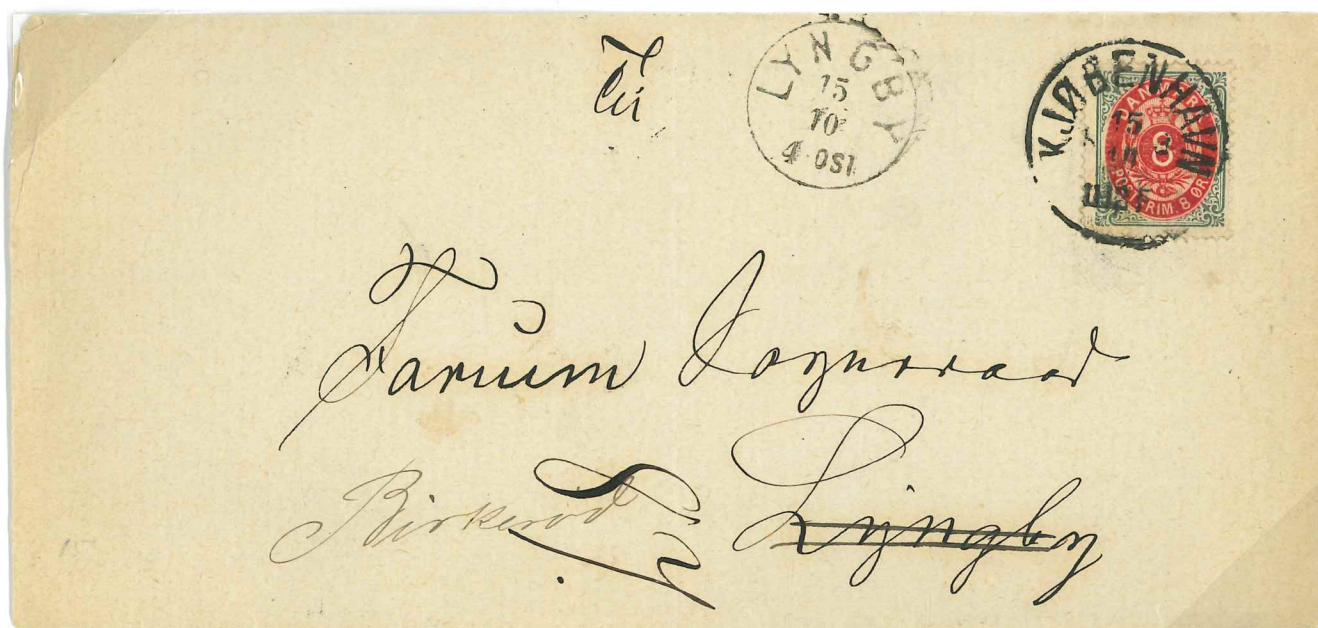 Til
LYNGBY
15
10
4 OST
KJØBENHAVN
15
DANMARK
8
POSTFRIM. 8 ØRE
Farum Sogneraad
Birkerød
Lyngby